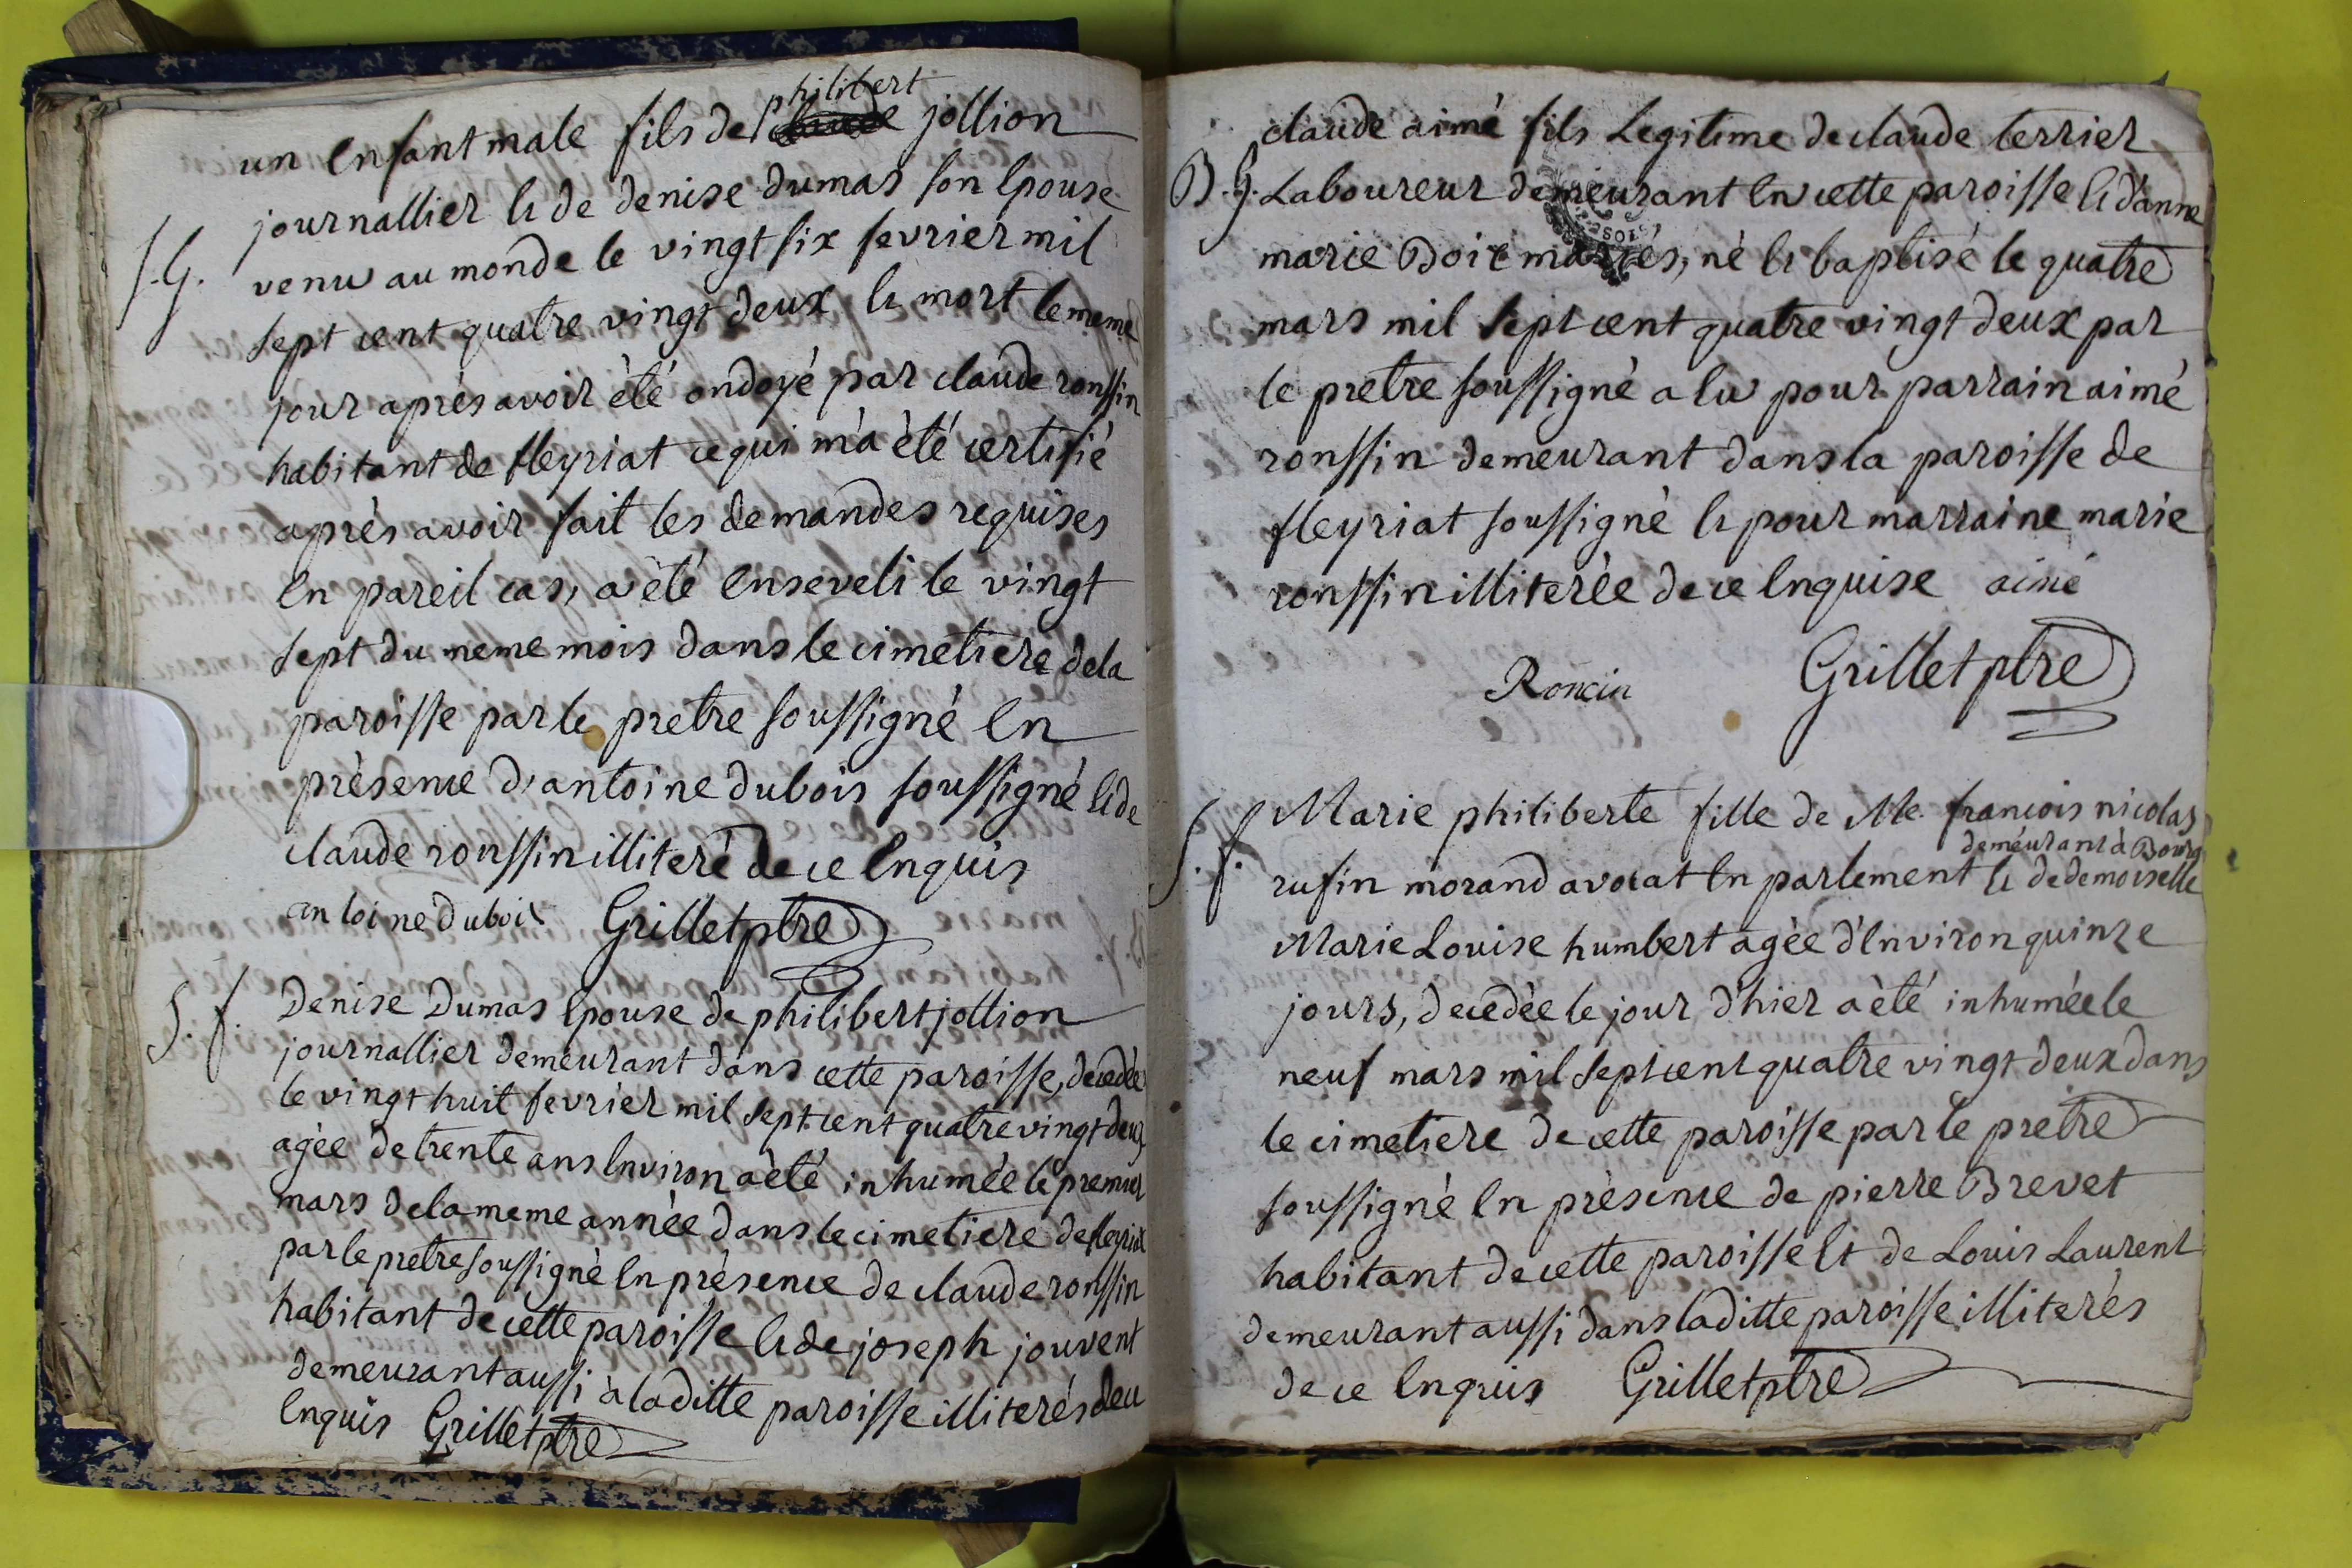 philibert
un enfant male fils de claude jollion
journallier et de denise dumas son epouse
S.G. venu au monde le vingt six fevrier mil
sept cent quatre vingt deux et mort le meme
jour après avoir été ondoyé par claude ronssin
habitant de fleyriat ce qui m'a été certifié
après avoir fait les demandes requises
en pareil cas, a été enseveli le vingt
sept du meme mois dans le cimetiere de la
paroisse par le pretre soussigné en
présence d'antoine dubois soussigné et de
claude ronssin illiteré de ce enquis
antoine duboi Grillet ptre
S.f. Denise Dumas epouse de philibert jollion
journallier demeurant dans cette paroisse, decedée
le vingt huit fevrier mil sept cent quatre vingt deux
agée de trente ans environ a été inhumée le premier
mars de la meme année dans le cimetiere de fleyriat
par le pretre soussigné en présence de claude ronssin
habitant de cette paroisse et de joseph jouvent
demeurant aussi à la ditte paroisse illiterés de ce
enquis Grillet ptre
claude aimé fils Legitime de claude terrier
B.G. Laboureur demeurant en cette paroisse et d'anne
marie Boi mariés, né et baptisé le quatre
mars mil sept cent quatre vingt deux par
le pretre soussigné a eu pour parrain aimé
ronssin demeurant dans la paroisse de
fleyriat soussigné et pour marraine marie
ronssin illiterée de ce enquise aimé
Roncin Grillet ptre
Marie philiberte fille de Me. francois nicolas
demeurant à Bourg
S.f. rufin morand avocat en parlement et de demoiselle
Marie Louise humbert agée d'environ quinze
jours, decedée le jour d'hier a été inhumée le
neuf mars mil sept cent quatre vingt deux dans
le cimetiere de cette paroisse par le pretre
soussigné en présence de pierre Brevet
habitant de cette paroisse et de Louis Laurent
demeurant aussi dans la ditte paroisse illiterés
de ce enquis Grillet ptre